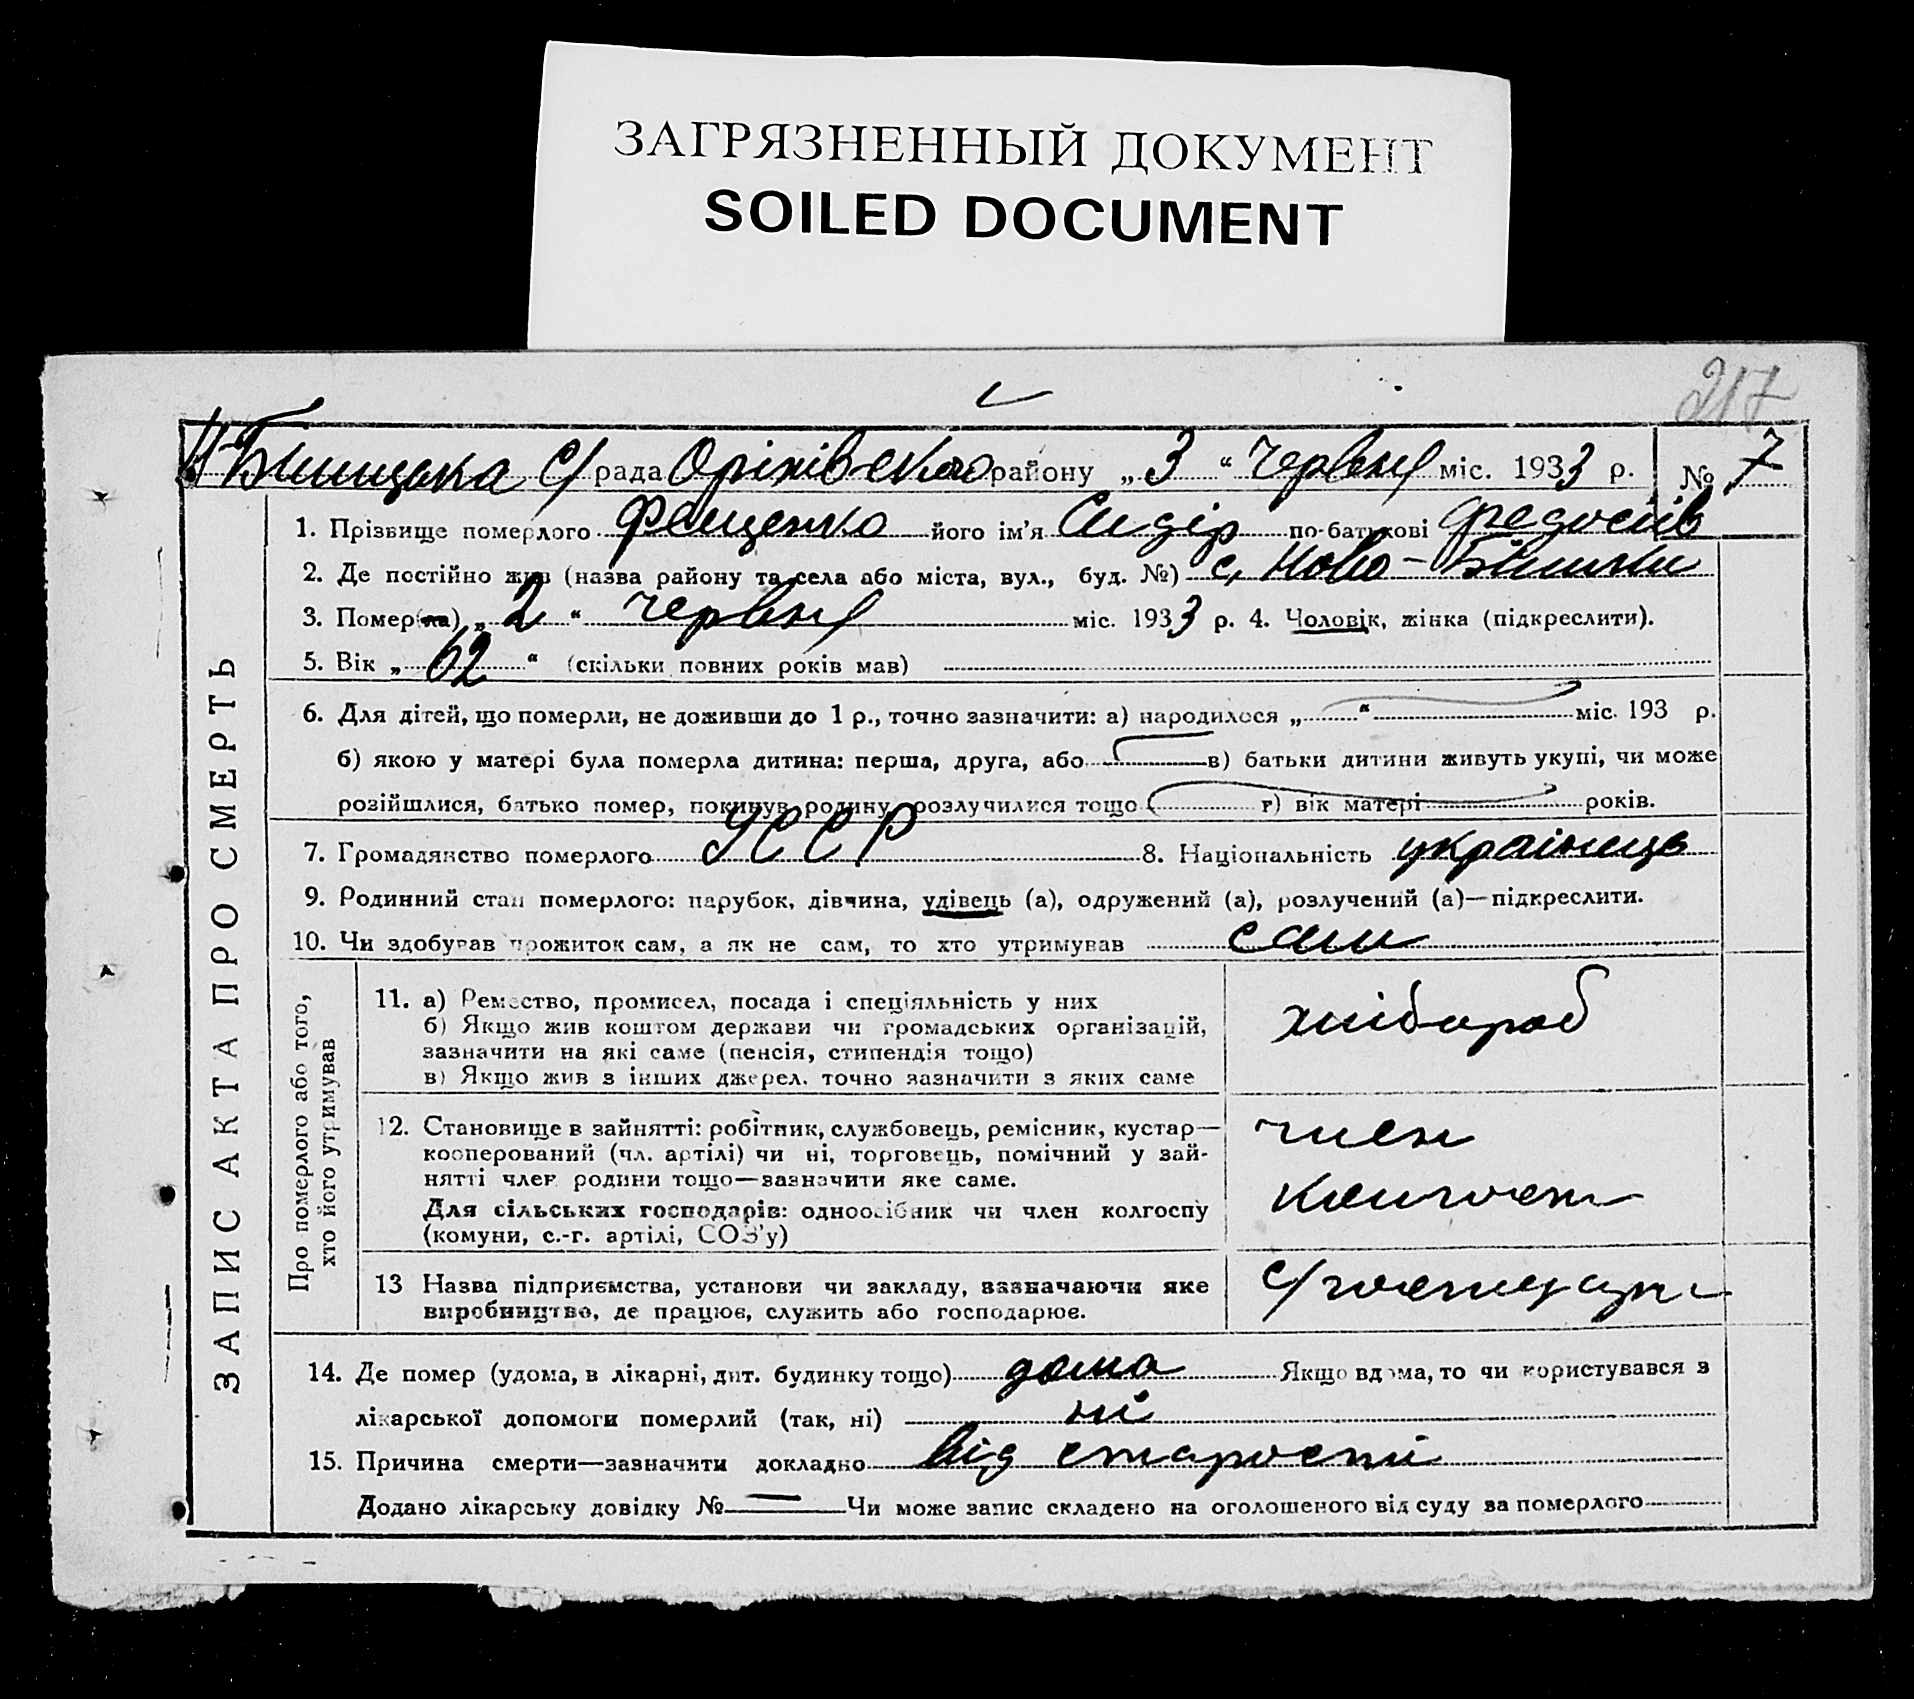 ЗАГРЯЗНЕННЫЙ ДОКУМЕНТ
SOILED DOCUMENT
217
рада Оріхівського району „ 3 “ Червня міс. 1933 р. № 7
ЗАПИС АКТА ПРО СМЕРТЬ
1. Прізвище померлого Фещенко його ім’я Сидір по-батькові Федосіїв
2. Де постійно жив (назва району та села або міста, вул., буд. №) с. Ново-
3. Помер(ла) „ 2 “ червня міс. 1933 р. 4. Чоловік, жінка (підкреслити).
5. Вік „ 62 “ (скільки повних років мав)
6. Для дітей, що померли, не доживши до 1 р., точно зазначити: а) народилося „ “ міс. 193 р.
б) якою у матері була померла дитина: перша, друга, або в) батьки дитини живуть укупі, чи може
розійшлися, батько помер, покинув родину, розлучилися тощо г) вік матері років.
7. Громадянство померлого УССР 8. Національність українець
9. Родинний стан померлого: парубок, дівчина, удівець (а), одружений (а), розлучений (а)—підкреслити.
10. Чи здобував прожиток сам, а як не сам, то хто утримував сам
Про померлого або того,
хто його утримував
11. а) Ремество, промисел, посада і спеціяльність у них
б) Якщо жив коштом держави чи громадських організацій,
зазначити на які саме (пенсія, стипендія тощо)
в) Якщо жив з інших джерел, точно зазначити з яких саме
хлібороб
12. Становище в зайнятті: робітник, службовець, ремісник, кустар—
кооперований (чл. артілі) чи ні, торговець, помічний у зай-
нятті член родини тощо—зазначити яке саме.
Для сільських господарів: одноосібник чи член колгоспу
(комуни, с.-г. артілі, СОЗ’у)
член
13 Назва підприємства, установи чи закладу, зазначаючи яке
виробництво, де працює, служить або господарює.
14. Де помер (удома, в лікарні, дит. будинку тощо) дома Якщо вдома, то чи користувався з
лікарської допомоги померлий (так, ні) ні
15. Причина смерти—зазначити докладно від старости
Додано лікарську довідку № — Чи може запис складено на оголошеного від суду за померлого